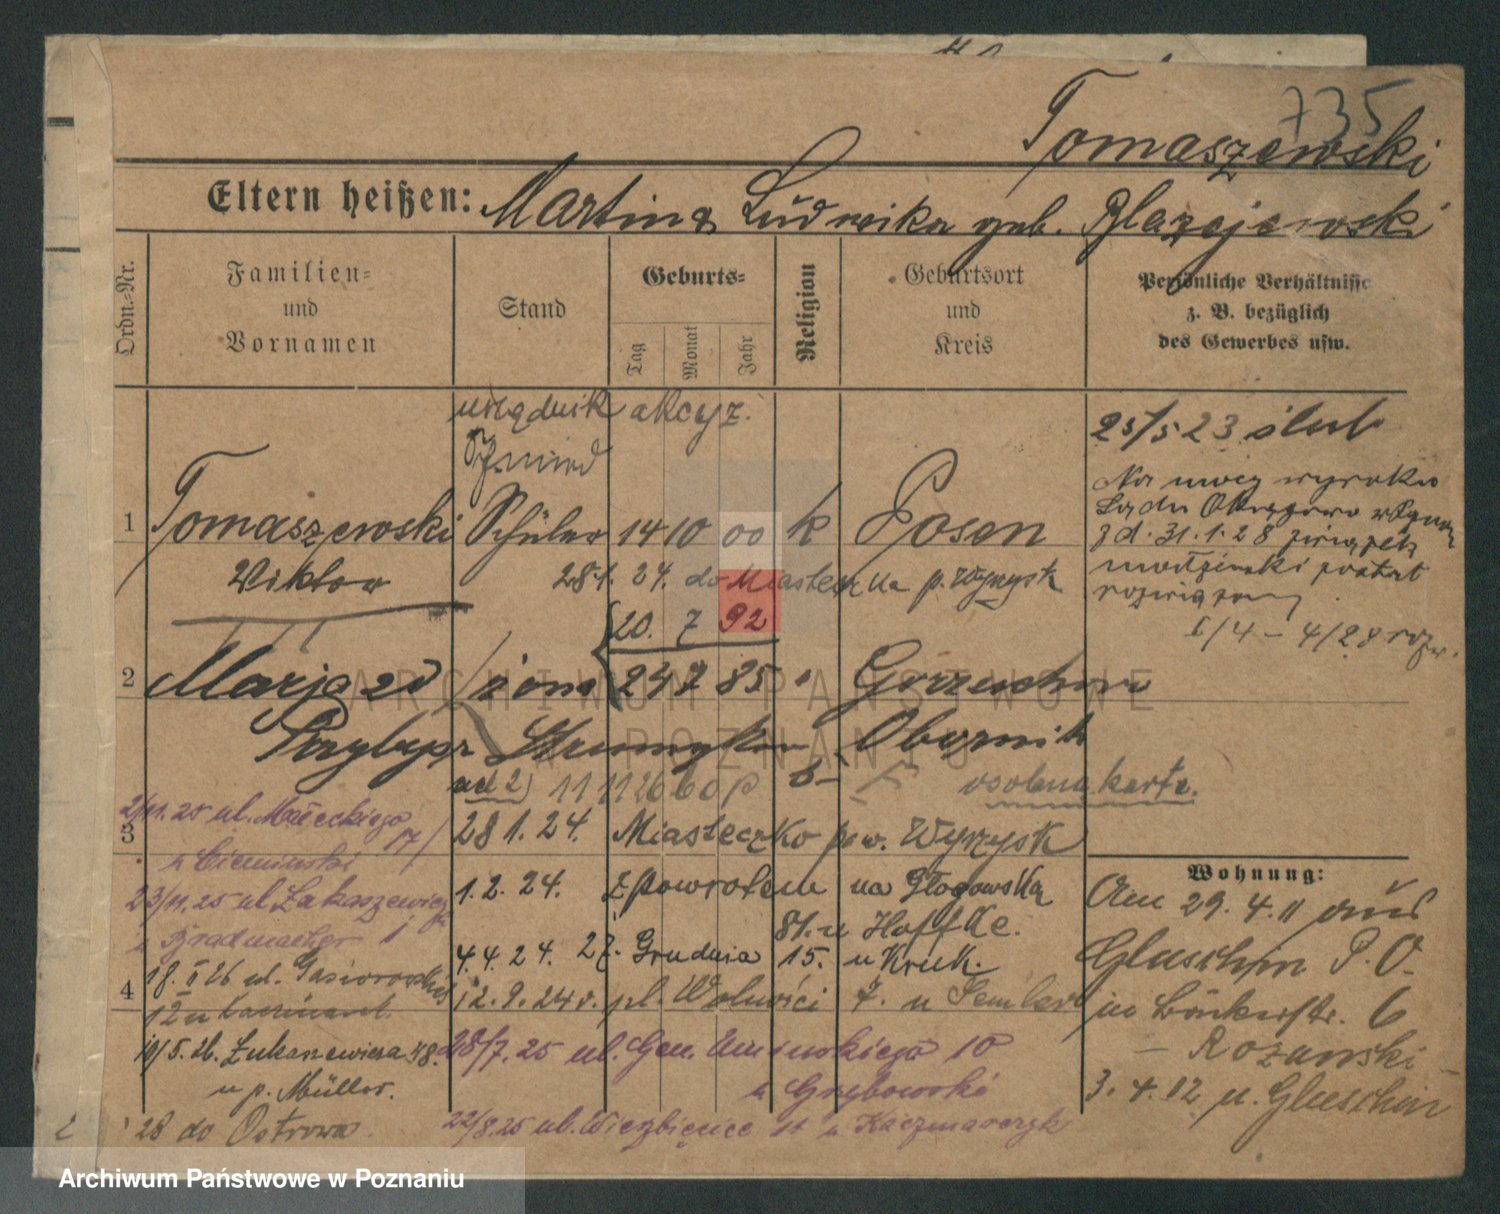 735
Tomaszewski
Eltern heißen: Martin & Ludwika geb. Blazejewski
Ordn.-Nr.
Familien- und Vornamen
Stand
Geburts-
Tag
Monat
Jahr
Religion
Geburtsort und Kreis
Persönliche Verhältnisse z. B. bezüglich des Gewerbes usw.
urzędnik akcyz.
25/5 23 ślub
1 Tomaszewski Schüler 14 10 00 k Posen
Wiktor
28.1.24. do Miasteczka p. Wyrzysk
Na mocy wyroku
Sądu Okręgowo w Pozna
z d. 31.1.28 związek
małżeński został
rozwiązany
20. 7 92
2 Marja zd żona 24 7 85
Przybysz Obornik
ad 2) 11 11 26
osobna karta.
3
2/11.25 ul. Małeckiego 17/
28 1. 24. Miasteczko pow. Wyrzysk
23/11.25 ul. Łukaszewicz
1. 2. 24. z powrotem na Głogowska
81. u Hoffke.
4. 4. 24. 27. Grudnia 15. u Kruk.
4
18. II 26 ul. Gąsiorowskich
12 u
12. 9. 24 r. pl. Wolności 7. u
19/5. 26. Łukaszewicza 48.
u p. Müller.
28/7. 25 ul. Gen. 10
u Grzybowski
28 do Ostrowa
22/8.25 ul. Wierzbięcice 11 u Kaczmarczyk
Wohnung:
Am 29. 4. 11 aus
Gluschin P. O.
in Bäckerstr. 6
3. 4. 12 n. Gluschin
ARCHIWUM PAŃSTWOWE
W POZNANIU
Archiwum Państwowe w Poznaniu